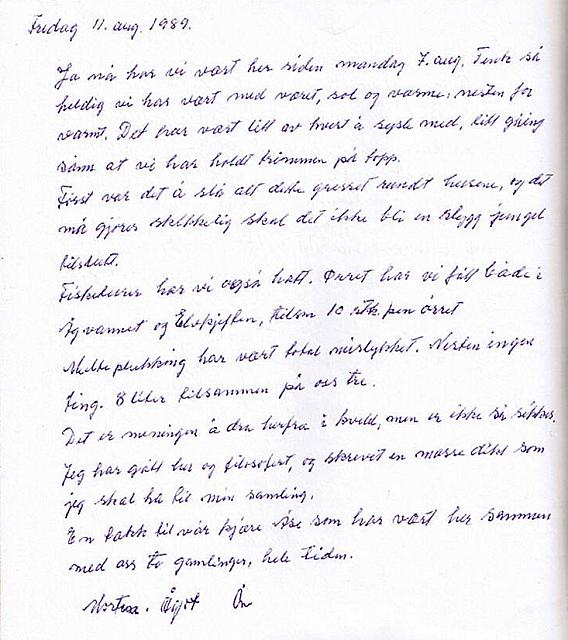 Fredag 11. aug. 1989.
Ja nå har vi vært her siden mandag 7. aug. Tenk så
heldig vi har vært med været, sol og varme, nesten for
varmt. Det har vært litt av hvert å sysle med, litt gåing
sånn at vi har holdt trimmen på topp.
Først var det å slå alt dette gresset rundt husene, og det
må gjøres skikkelig skal det ikke bli en stygg jungel
tilslutt.
Fisketurer har vi også hatt. Ørret har vi fått både i
og Elvkjeften, tilsm 10 stk. pen ørret
Molteplukking har vært total mislykket. Nesten ingen
ting. 8 liter tilsammen på oss tre.
Det er meningen å dra herfra i kveld, men er ikke så sikker.
Jeg har gått her og filosofert, og skrevet en masse dikt som
jeg skal ha til min samling.
En takk til vår kjære Åse som har vært her sammen
med oss to gamlinger, hele tiden.